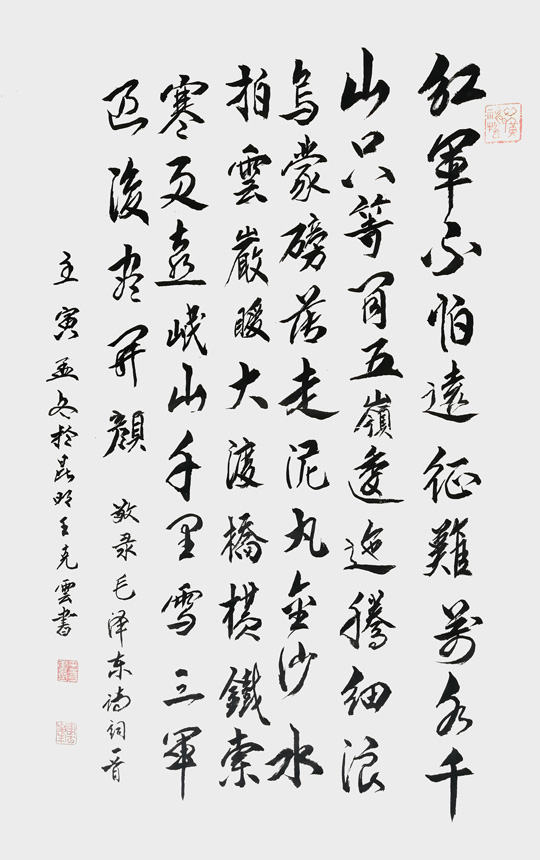 紅軍不怕遠征難萬水千
山只等閒五嶺逶迤騰細浪
烏蒙磅礴走泥丸金沙水
拍雲巖暖大渡橋橫鐵索
寒更喜岷山千里雪三軍
過後盡開顏
敬录毛泽东诗词一首
壬寅孟冬於昆明王克雲書